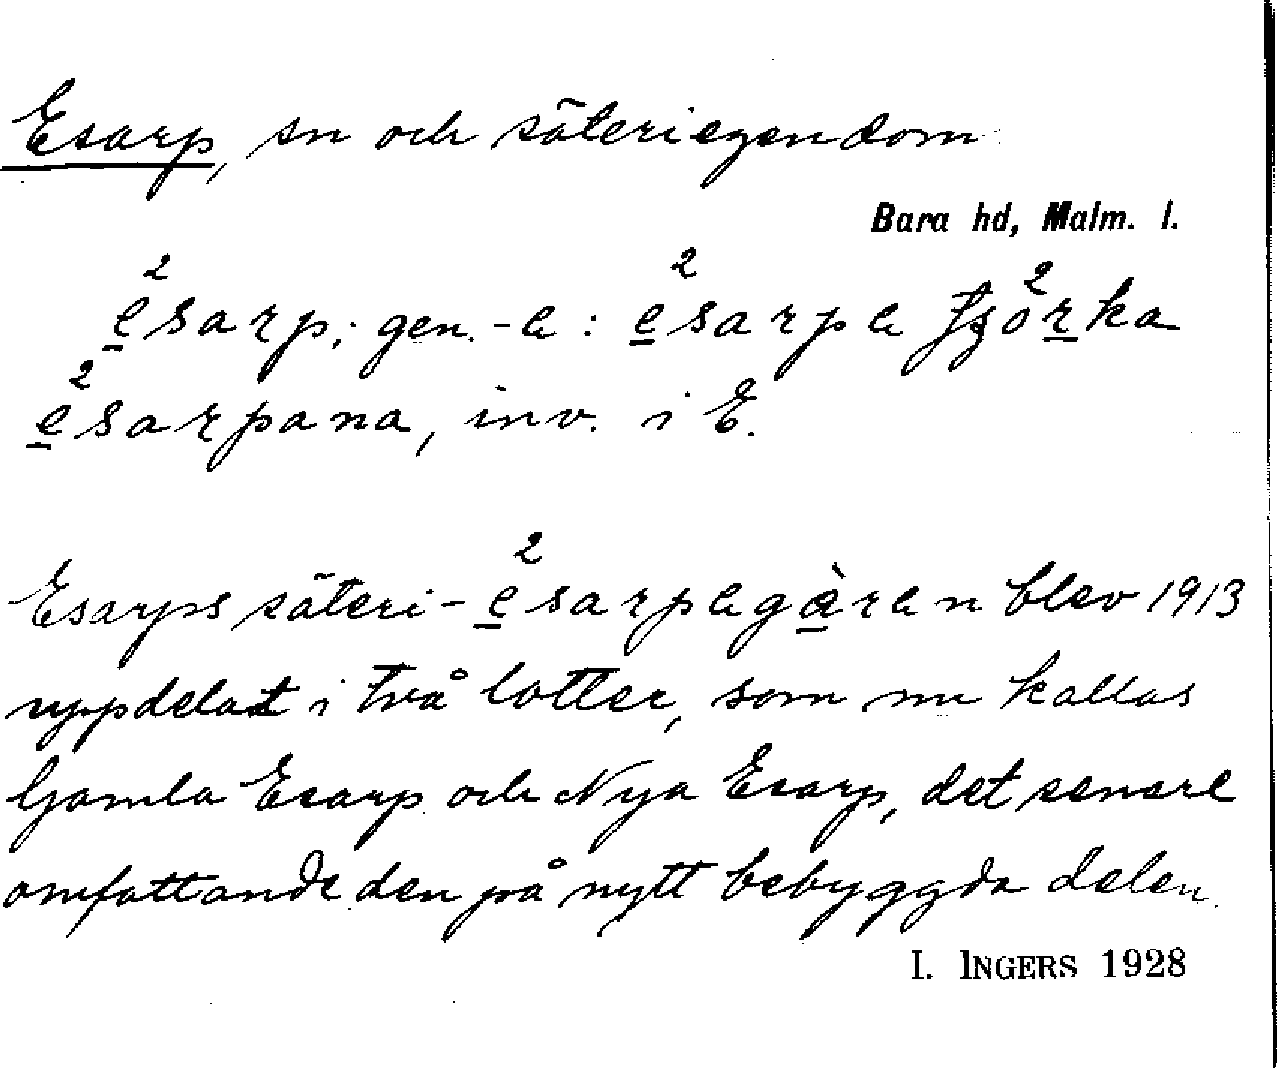 Esarp, sn och säteriegendom
Bara hd, Malm. l.
e²sarp; gen. -a : e²sarpa tjö²rka
e²sarpana, inv. i E.
Esarps säteri - e²sarpagæ̀ran blev 1913
uppdelat i två lotter, som nu kallas
Gamla Esarp och Nya Esarp, det senare
omfattande den på nytt bebyggda delen.
I. INGERS 1928